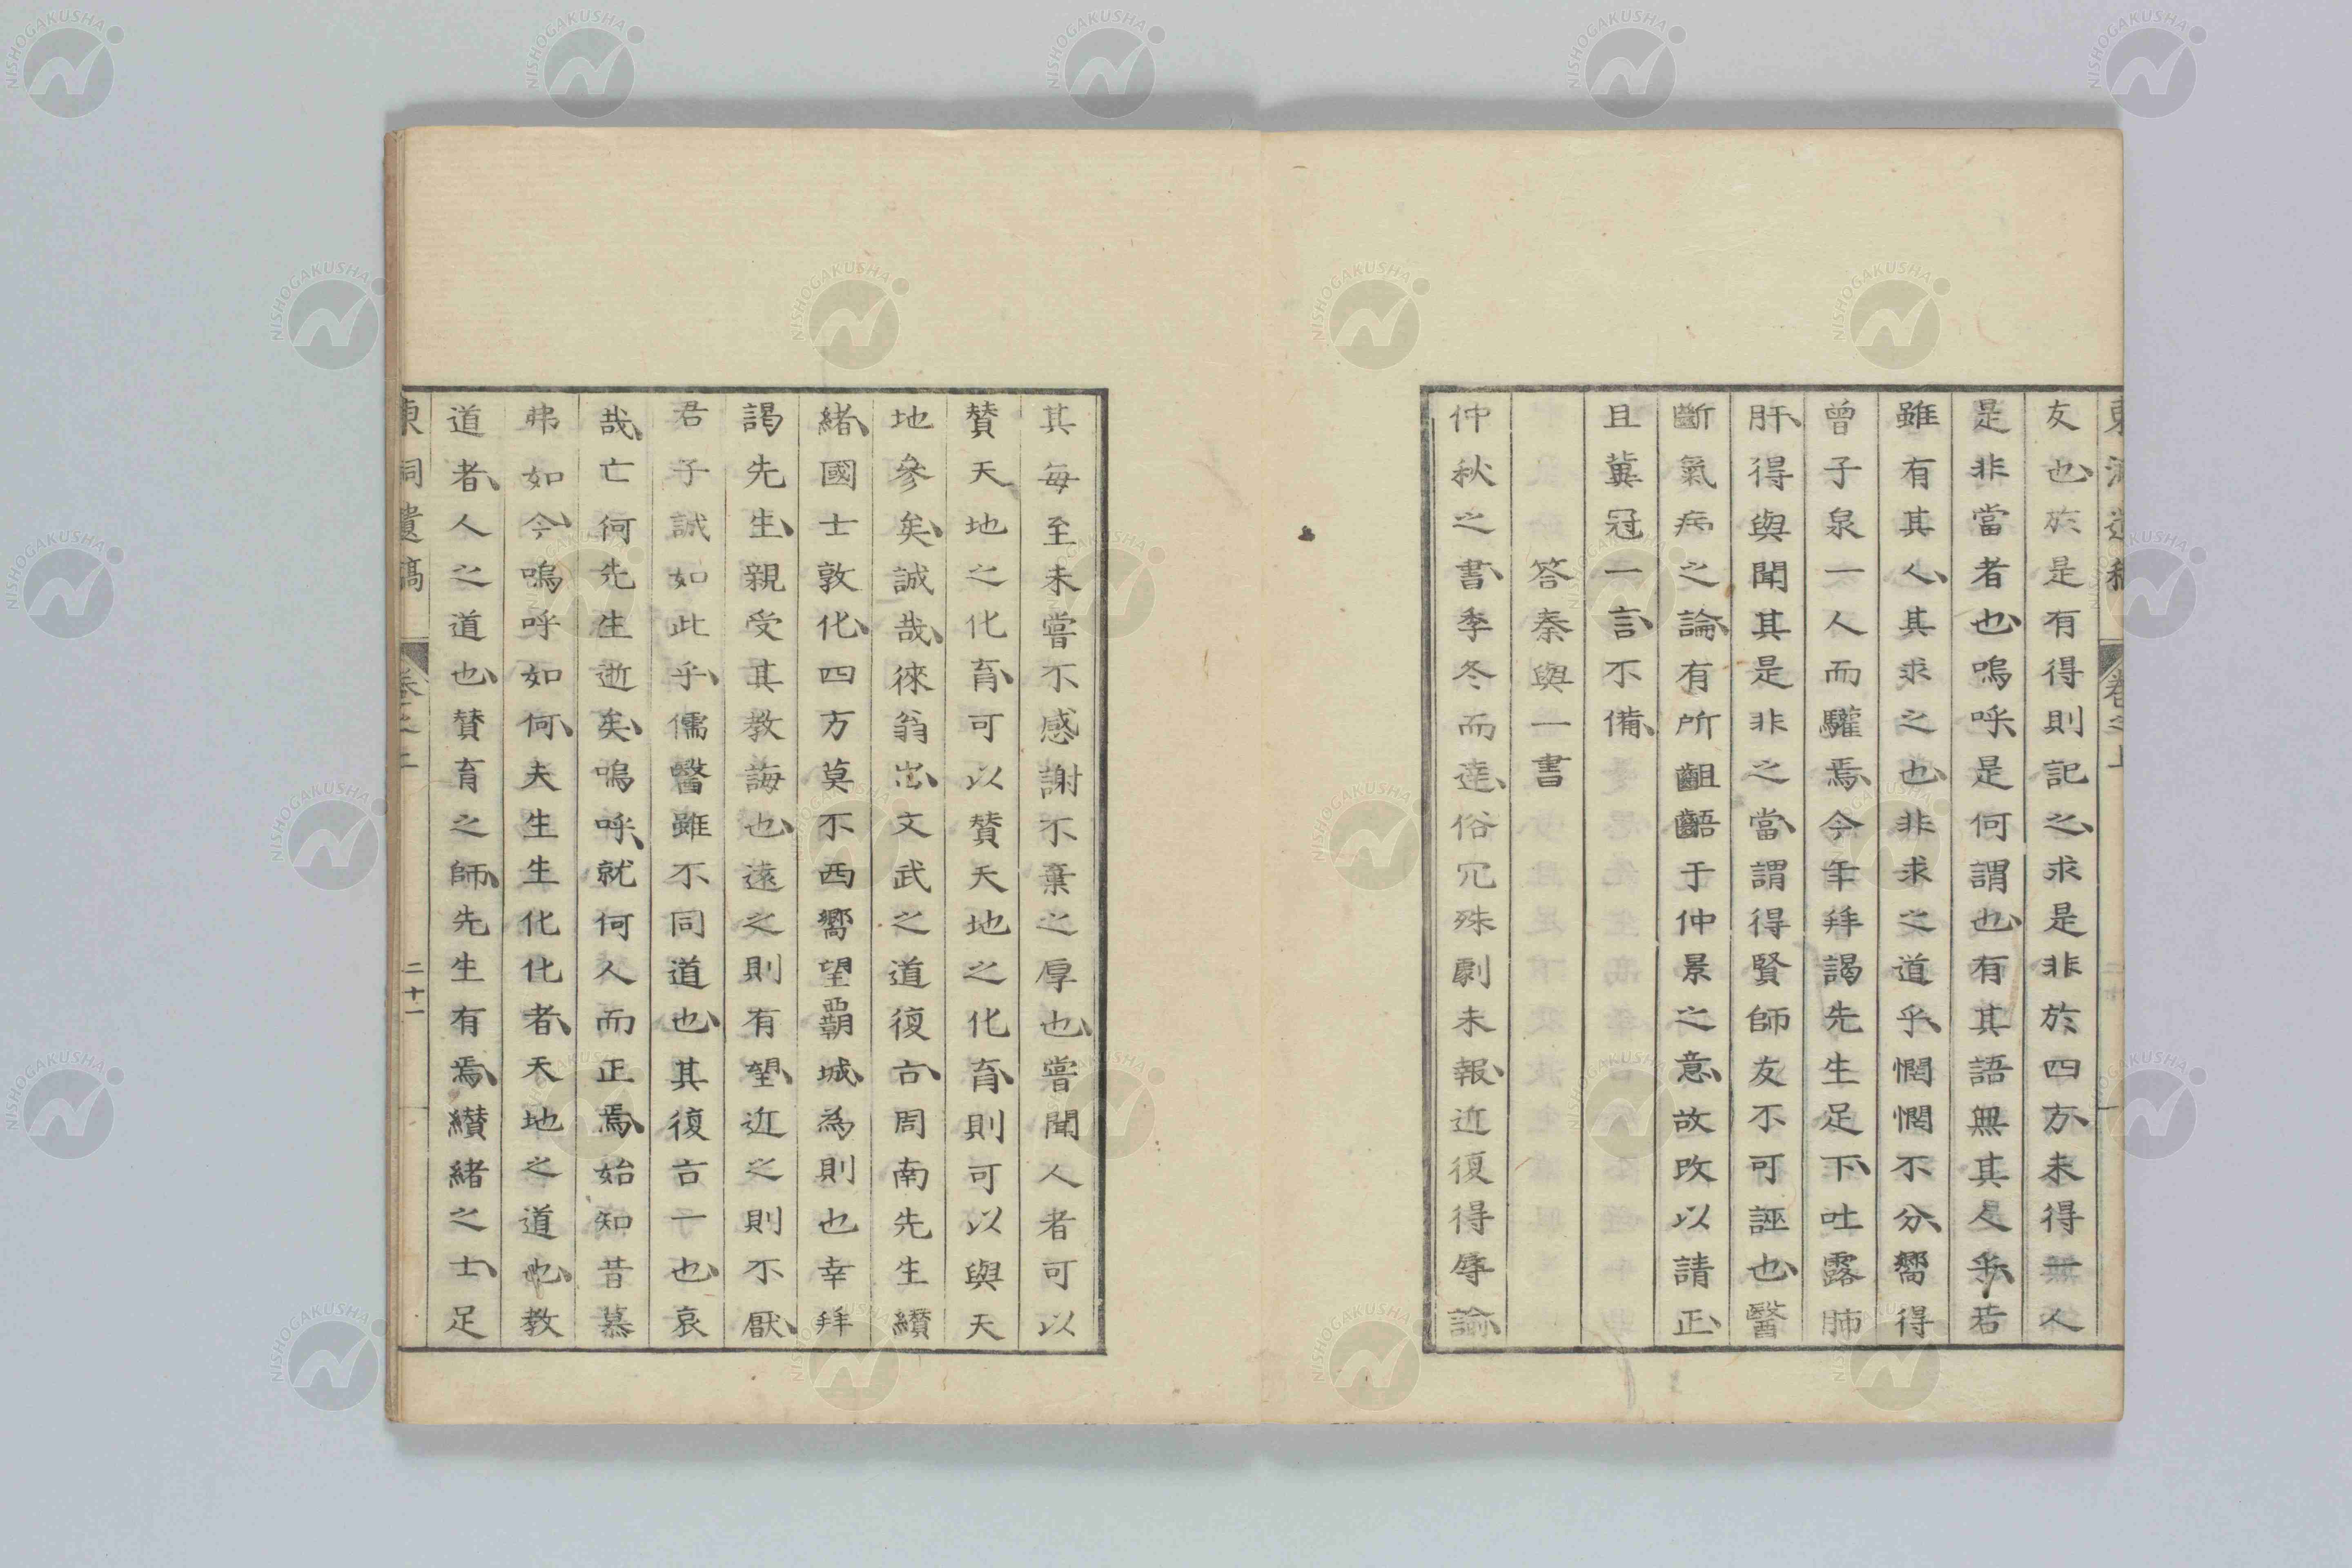 友也、於是有得則記之、求是非於四方、未得無人
是非當者也、嗚呼、是何謂也、有其語無其人乎、若
雖有其人、其求之也、非求之道乎、惘惘不分、嚮得
曾子泉一人而驩焉、今年拜謁先生足下、吐露肺
肝、得與聞其是非之當、謂得賢師友不可誣也、醫
斷氣病之論、有所齟齬于仲景之意、故改以請正、
且冀冠一言、不備、
答秦與一書
仲秋之書、季冬而達、俗冗殊劇未報、近復得辱諭、
其每至未嘗不感謝不棄之厚也、嘗聞人者可以
贊天地之化育、可以贊天地之化育、則可以與天
地參矣、誠哉、徠翁出、文武之道復古、周南先生纘
緒、國士敦化、四方莫不西嚮望覇城、為則也幸拜
謁先生、親受其教誨也、遠之則有望、近之則不厭、
君子誠如此乎、儒醫雖不同道也、其復古一也、哀
哉、亡何先生逝矣、嗚呼、就何人而正焉、始知昔慕
弗如今、嗚呼如何、夫生生化化者、天地之道也、教
道者、人之道也、贊育之師、先生有焉、纘緒之士、足
東洞遺稿 卷之上 二十一